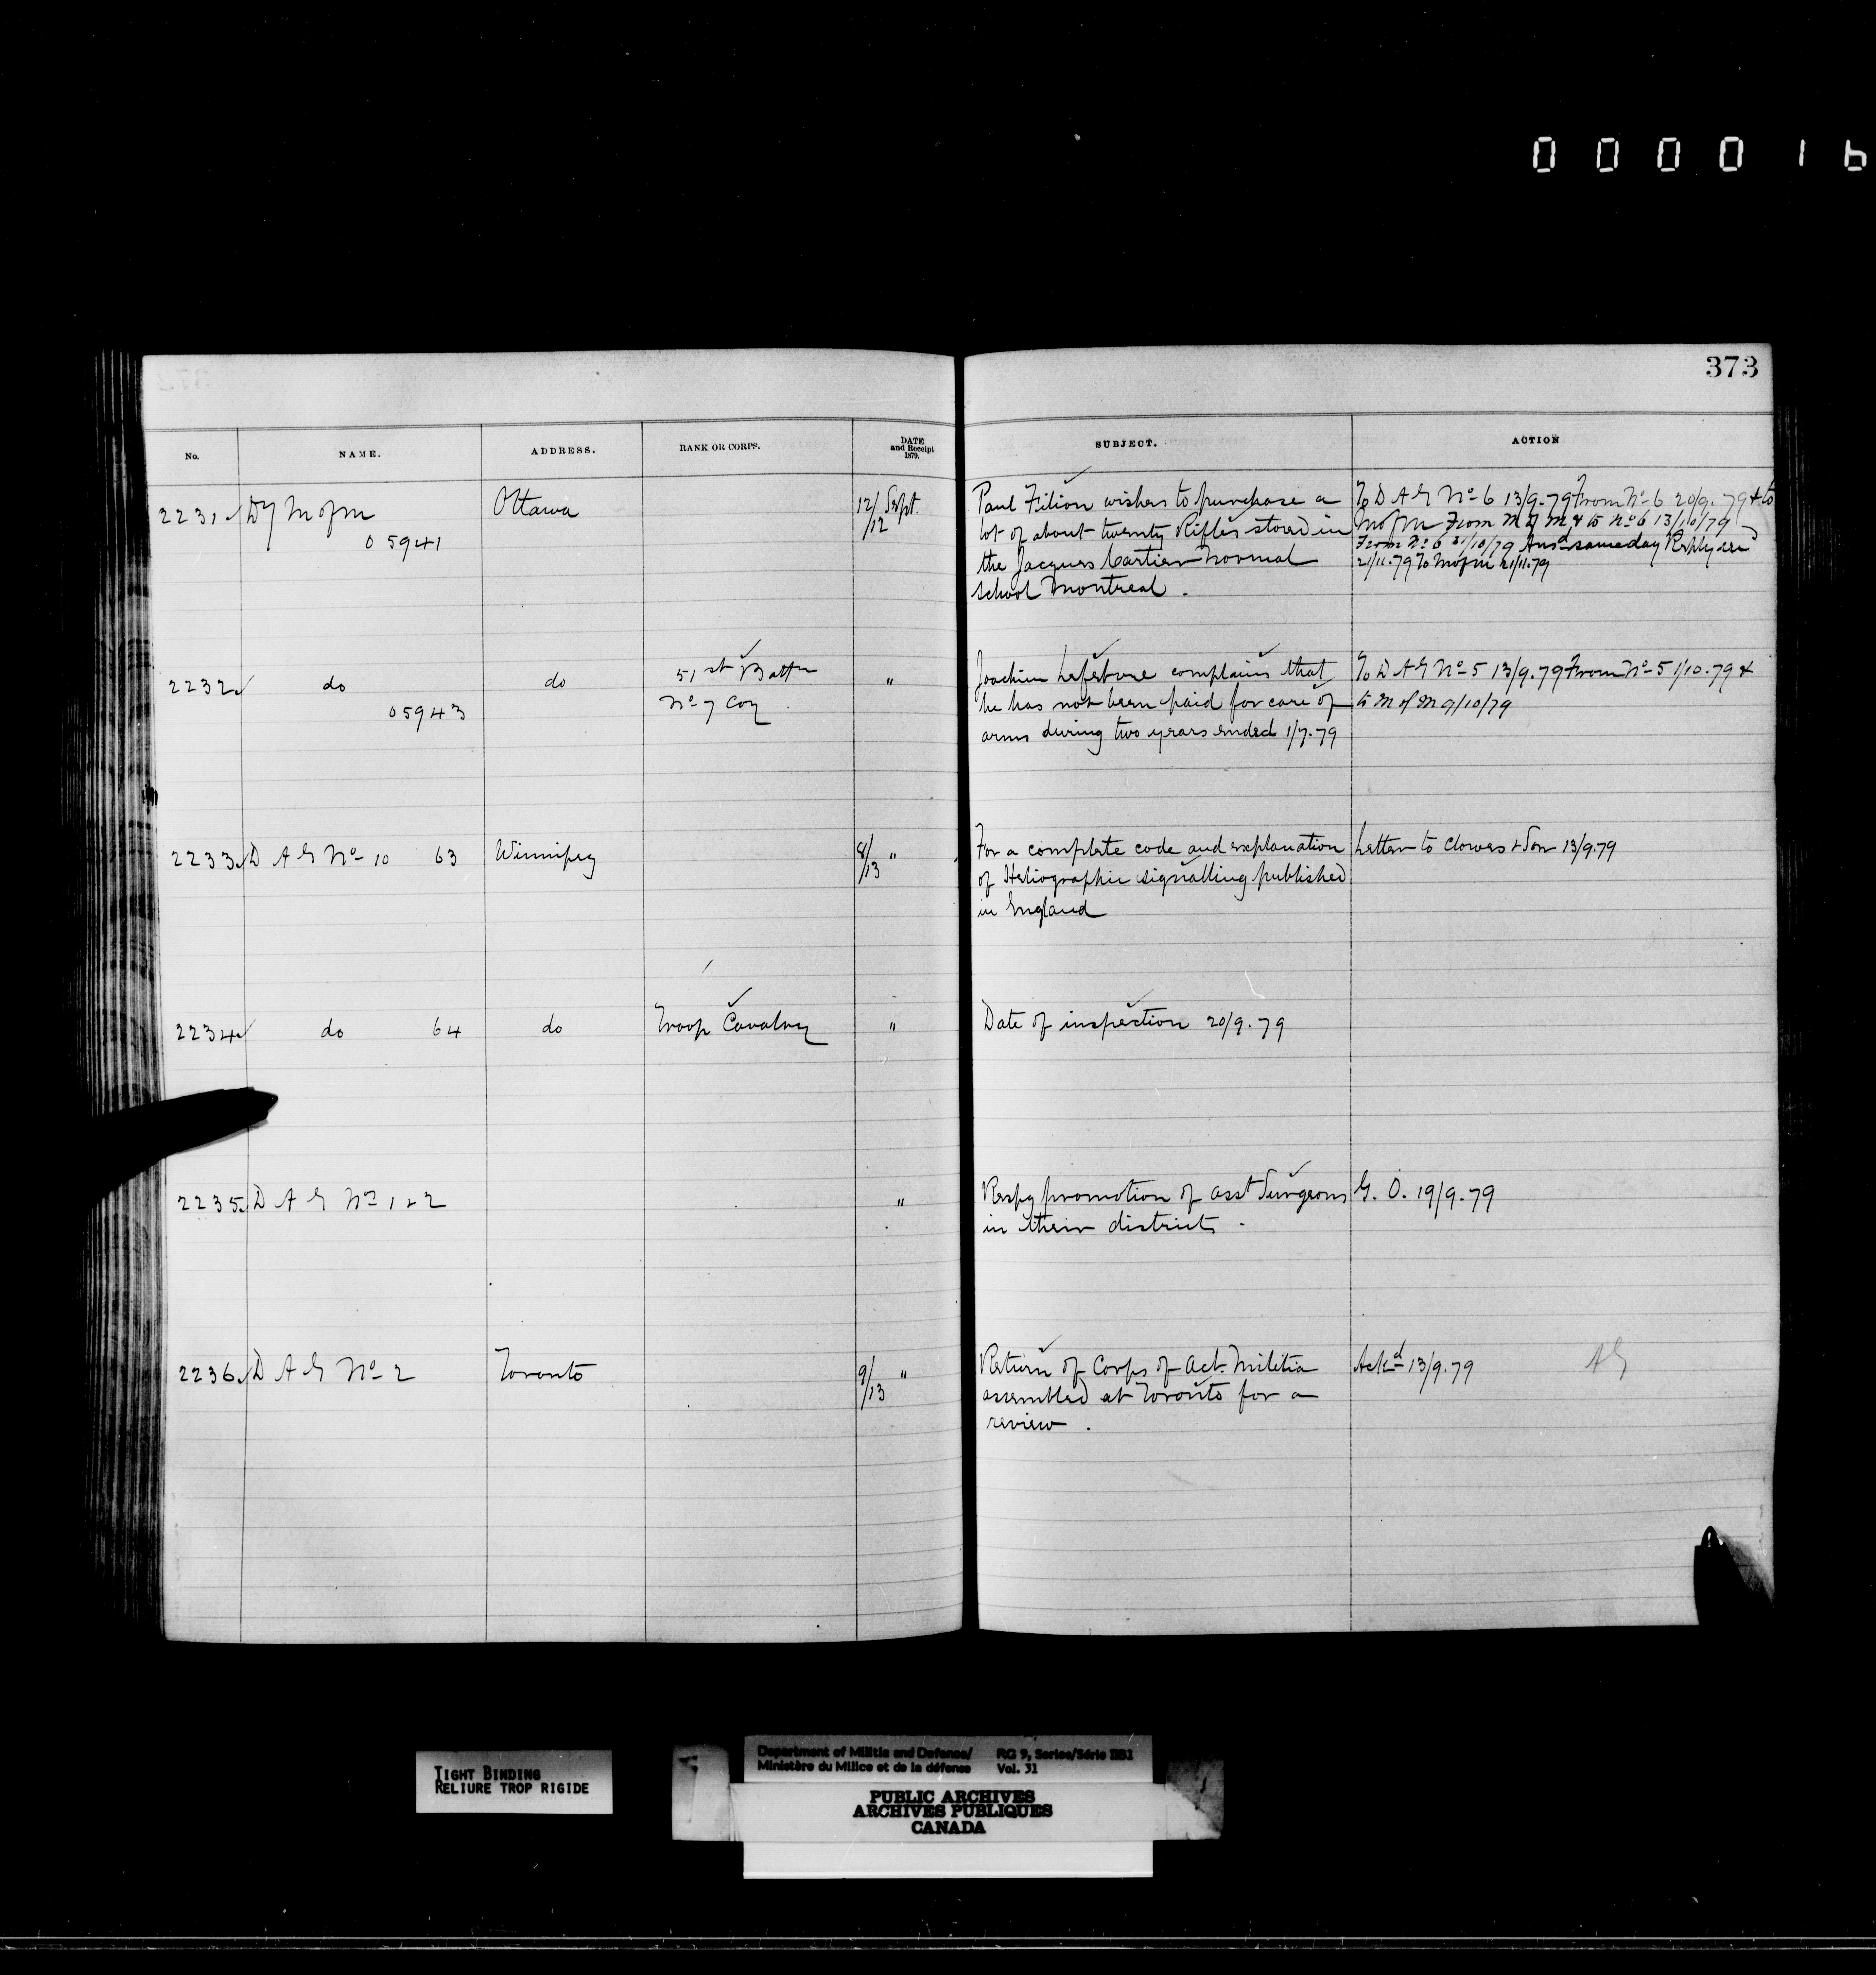 000016
373
No. NAME. ADDRESS. RANK OR CORPS. DATE and Receipt 1879. SUBJECT. ACTION
2231 Dy M of M Ottawa 12/12 Sept. Paul Filion wishes to purchase a To D A G No 6 13/9.79 From No 6 20/9.79 & to
05941 lot of about twenty Rifles stored in M of M From M of M & to No 6 13/10/79
the Jacques Cartier Normal From No 6 21/10/79 Ansd same day Reply recd
school Montreal. 21/11.79 To M of M 21/11.79
2232 do do 51st Battn " Joachim Lefebvre complains that To D A G No 5 13/9.79 From No 5 1/10.79 &
05943 No 7 Coy he has not been paid for care of to M of M 9/10/79
arms during two years ended 1/7.79
2233 D A G No 10 63 Winnipeg 8/13 " For a complete code and explanation Letter to Clowes & Son 13/9.79
of Heliographic signalling published
in England
2234 do 64 do Troop Cavalry " Date of inspection 20/9.79
2235 D A G No 1 & 2 " Respg promotion of asst Surgeons G. O. 19/9.79
in their districts.
2236 D A G No 2 Toronto 9/13 " Return of Corps of Act. Militia Ackd 13/9.79 AG
assembled at Toronto for a
review.
TIGHT BINDING
RELIURE TROP RIGIDE
Department of Militia and Defence/ RG 9, Series/Série IIB1
Ministère du Milice et de la défense Vol. 31
PUBLIC ARCHIVES
ARCHIVES PUBLIQUES
CANADA